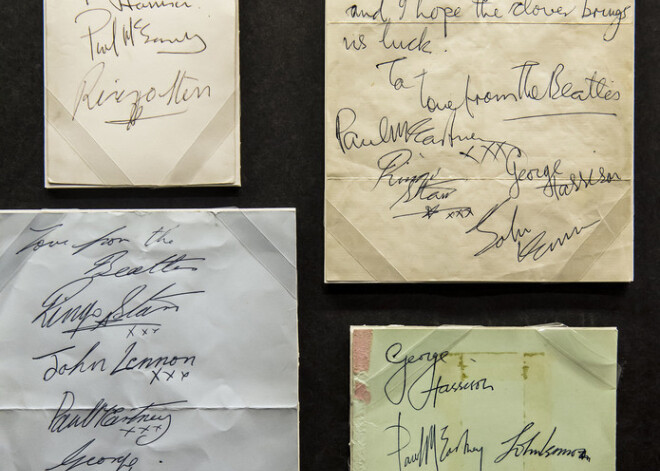 Harrison.
Paul McCartney
Ringo Starr
and I hope the clover brings
us luck.
Ta
Love from The Beatles
Paul McCartney
xxx
George
Harrison
Ringo
Starr
xxx
John
Lennon
Love from the
Beatles
Ringo Starr
xxx
John Lennon
xxx
Paul McCartney
xxx
George
George
Harrison
Paul McCartney John Lennon